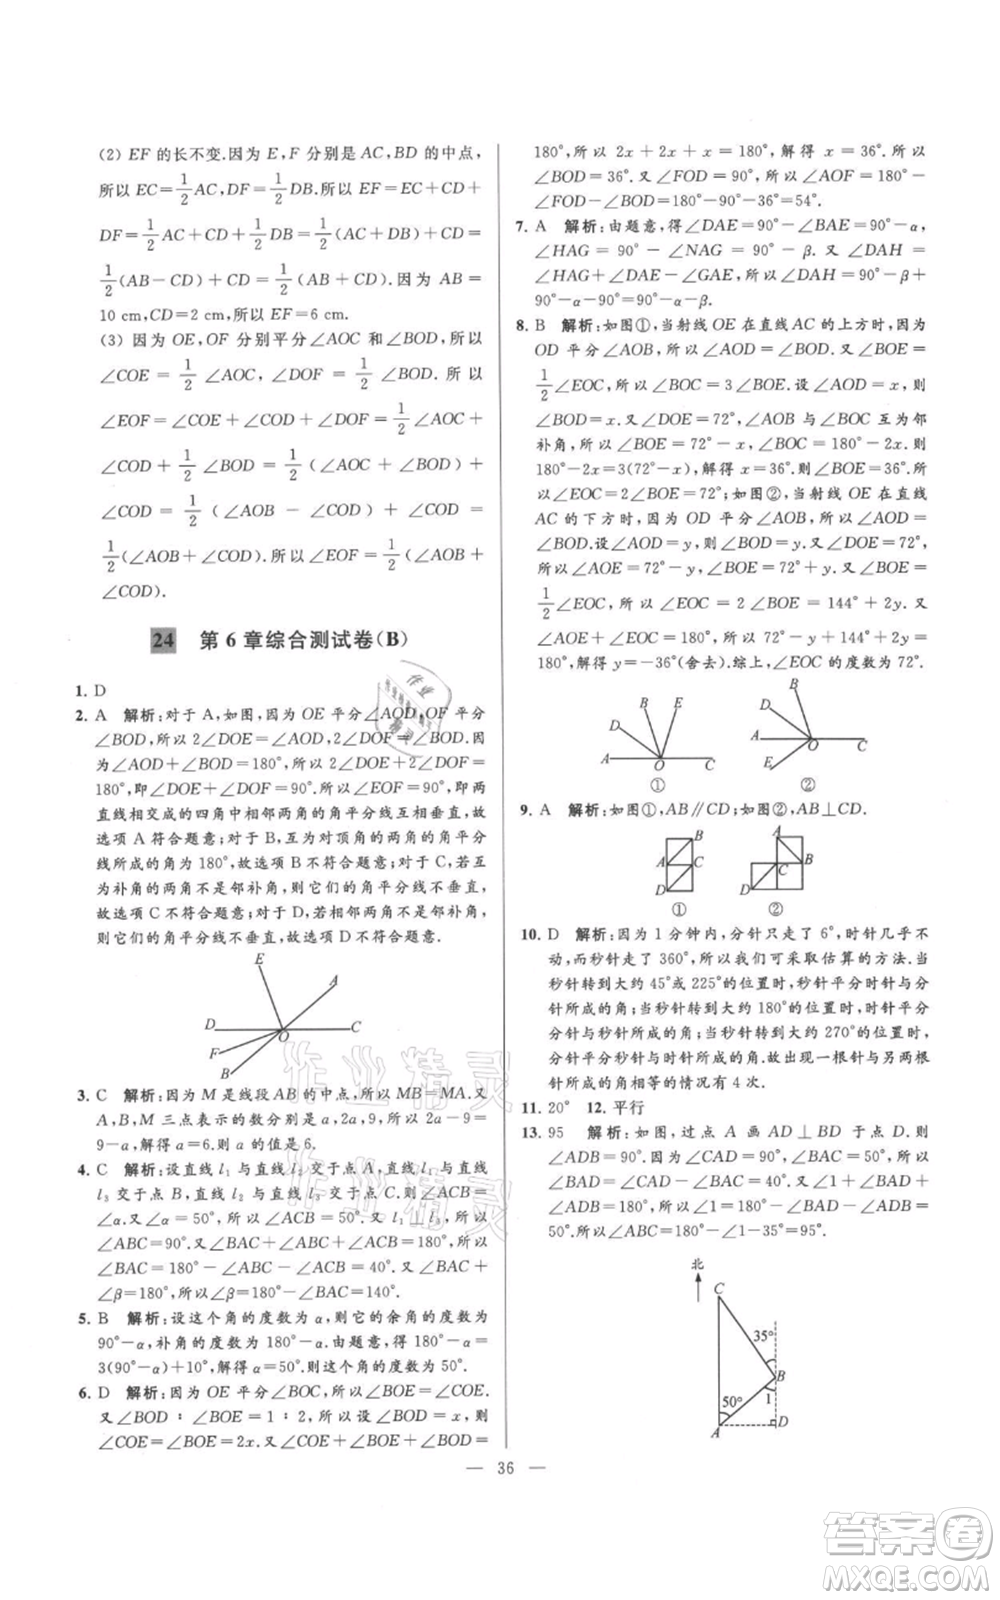 (2) EF 的长不变.因为 E,F 分别是 AC,BD 的中点,
所以 EC=1/2AC,DF=1/2DB.所以 EF=EC+CD+
DF=1/2AC+CD+1/2DB=1/2(AC+BD)+CD=
1/2(AB-CD)+CD=1/2(AB+CD).因为 AB=
10 cm,CD=2 cm,所以 EF=6 cm.
(3) 因为 OE,OF 分别平分∠AOC 和∠BOD,所以
∠COE=1/2∠AOC,∠DOF=1/2∠BOD.所以
∠EOF=∠COE+∠COD+∠DOF=1/2∠AOC+
∠COD+1/2∠BOD=1/2(∠AOC+∠BOD)+
∠COD=1/2(∠AOB-∠COD)+∠COD=
1/2(∠AOB+∠COD).所以∠EOF=1/2(∠AOB+
∠COD).
24 第 6 章综合测试卷(B)
1. D
2. A 解析:对于 A,如图,因为 OE 平分∠AOD,OF 平分
∠BOD,所以 2∠DOE=∠AOD,2∠DOF=∠BOD.因为
∠AOD+∠BOD=180°,所以 2∠DOE+2∠DOF=
180°,即∠DOE+∠DOF=90°.所以∠EOF=90°.即两
直线相交成的四角中相邻两角的角平分线互相垂直,故
选项 A 符合题意;对于 B,互为对顶角的两角的角平分
线所成的角为 180°,故选项 B 不符合题意;对于 C,若互
为补角的两角不是邻补角,则它们的角平分线不垂直,
故选项 C 不符合题意;对于 D,若相邻两角不是邻补角,
则它们的角平分线不垂直,故选项 D 不符合题意.
E
A
D
O
C
F
B
3. C 解析:因为 M 是线段 AB 的中点,所以 MB=MA.又
A,B,M 三点表示的数分别是 a,2a,9,所以 2a-9=
9-a,解得 a=6.则 a 的值是 6.
4. C 解析:设直线 l₁ 与直线 l₂ 交于点 A,直线 l₂ 与直线
l₃ 交于点 B,直线 l₁ 与直线 l₃ 交于点 C,则∠ACB=
∠α.又∠α=50°,所以∠ACB=50°.又 l₁⊥l₃,所以
∠ABC=90°.所以∠BAC+∠ABC+∠ACB=180°,
所以∠BAC=180°-∠ABC-∠ACB=40°.又∠BAC+
∠β=180°,所以∠β=180°-∠BAC=140°.
5. B 解析:设这个角的度数为 α,则它的余角的度数为
90°-α,补角的度数为 180°-α.由题意,得 180°-α=
3(90°-α)+10°,解得 α=50°.则这个角的度数为 50°.
6. D 解析:因为 OE 平分∠BOC,所以∠BOE=∠COE.
又∠BOD∶∠BOE=1∶2,所以设∠BOD=x,则
∠COE=∠BOE=2x.又∠COE+∠BOE+∠BOD=
180°,所以 2x+2x+x=180°,解得 x=36°.所以
∠BOD=36°.又∠FOD=90°,所以∠AOF=180°-
∠FOD-∠BOD=180°-90°-36°=54°.
7. A 解析:由题意,得∠DAE=90°-∠BAE=90°-α,
∠HAG=90°-∠NAG=90°-β.又∠DAH=
∠HAG+∠DAE-∠GAE,所以∠DAH=90°-β+
90°-α-90°=90°-α-β.
8. B 解析:如图①,当射线 OE 在直线 AC 的上方时,因为
OD 平分∠AOB,所以∠AOD=∠BOD.又∠BOE=
1/2∠EOC,所以∠BOC=3∠BOE.设∠AOD=x,则
∠BOD=x.又∠DOE=72°,∠AOB 与∠BOC 互为邻
补角,所以∠BOE=72°-x,∠BOC=180°-2x.则
180°-2x=3(72°-x),解得 x=36°.则∠BOE=36°.所
以∠EOC=2∠BOE=72°;如图②,当射线 OE 在直线
AC 的下方时,因为 OD 平分∠AOB,所以∠AOD=
∠BOD.设∠AOD=y,则∠BOD=y.又∠DOE=72°,
所以∠AOE=72°-y,∠BOE=72°+y.又∠BOE=
1/2∠EOC,所以∠EOC=2∠BOE=144°+2y.又
∠AOE+∠EOC=180°,所以 72°-y+144°+2y=
180°,解得 y=-36°(舍去).综上,∠EOC 的度数为 72°.
B
E
D
A
O
C
①
B
D
A
O
C
E
②
9. A 解析:如图①,AB∥CD;如图②,AB⊥CD.
B
A
C
D
①
A
C
B
D
②
10. D 解析:因为 1 分钟内,分针只走了 6°,时针几乎不
动,而秒针走了 360°,所以我们可采取估算的方法.当
秒针转到大约 45°或 225°的位置时,秒针平分时针与分
针所成的角;当秒针转到大约 180°的位置时,时针平分
分针与秒针所成的角;当秒针转到大约 270°的位置时,
分针平分秒针与时针所成的角.故出现一针与另两针
所成的角相等的情况有 4 次.
11. 20° 12. 平行
13. 95 解析:如图,过点 A 画 AD⊥BD 于点 D.则
∠ADB=90°.又∠CAD=90°,∠CAB=50°,所以
∠BAD=∠CAD-∠CAB=40°.又∠1+∠BAD+
∠ADB=180°,所以∠1=180°-∠BAD-∠ADB=
50°.所以∠ABC=180°-∠1-35°=95°.
北
C
35°
B
50°
1
A
D
— 36 —
作业精灵
作业精灵
答案圈
MXQE.COM